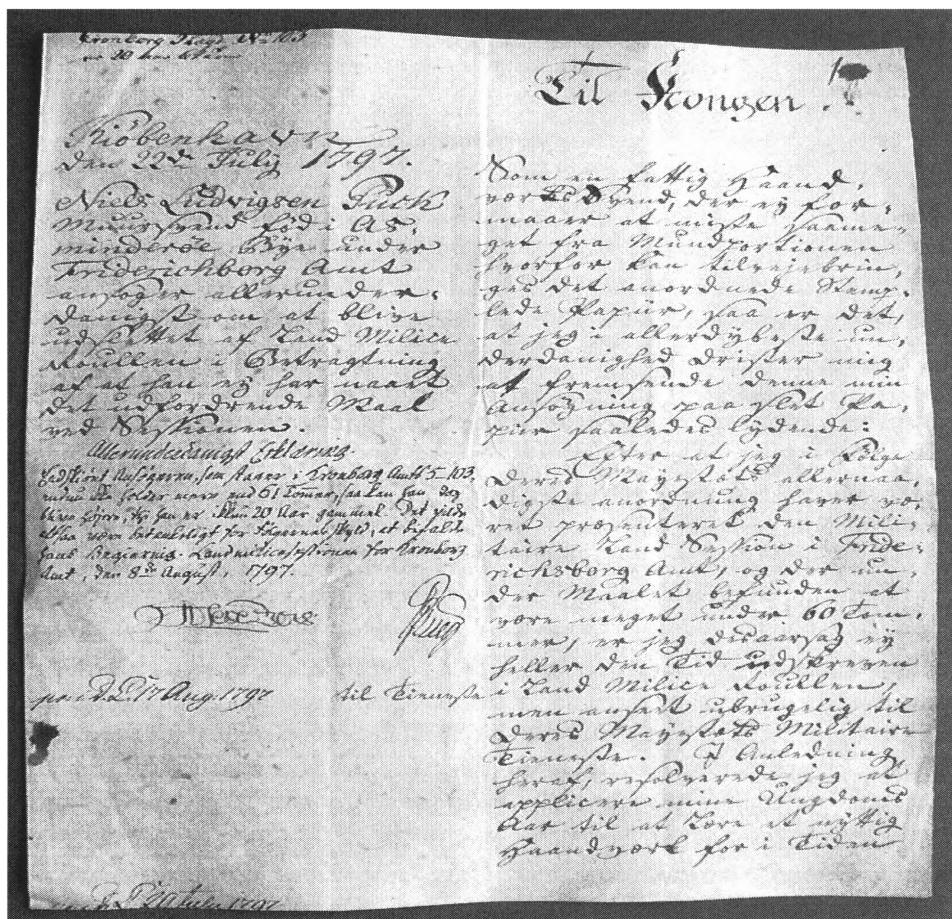 Kiøbenhavn
den 22de July 1797.
Niels Ludvigsen Puck
Muursvend föd i As,
minderöe Bÿe under
Friderichborg Amt
ansöger allerunder,
danigst om at blive
udslettet af Land Milice
Roullen i Betragtning
af at han eÿ har naaet
det udfordrende Maal
ved Sessionen.
Allerunderdanigst Erklæring
som staaer i Kronborg Amts 5-103,
holder mere end 61 Tommer, saa kan han dog
blive höyere, thi han er ikkun 20 Aar gammel. Det vilde
altsaa være betænkeligt for
hans Begiering. Landmilicesessionen for Kronborg
Amt, den 8de August, 1797.
17 Aug. 1797
til Tieneste
July 1797
Til Kongen.
Som en fattig Haand,
værks Svend, der eÿ for,
maaer at miste saame,
get fra Mundportionen
hvorfor kan tilvejebrin,
ges det anordnede Stemp,
lede Papiir, saa er det,
at jeg i allerdÿbeste un,
derdanighed drister mig
at fremsende denne min
Ansögning paa slet Pa,
piir saaledes lÿdende:
Efter at jeg i Fölge
Deres Maÿestæts allernaa,
digste anordning haver væ,
ret præsenteret den Mili,
taire Land Session i Fride,
richsborg Amt, og der un,
der Maalet befunden at
være meget under 60 Tom,
mer, er jeg desaarsag eÿ
heller den Tid udskreven
i Land Milice Roullen,
men anseet ubrugelig til
Deres Maÿestæts Militaire
Tieneste. I Anledning
heraf, resolverede jeg at
applicere mine Ungdoms
Aar til at Lære et nÿttig
Haandværk for i Tiden